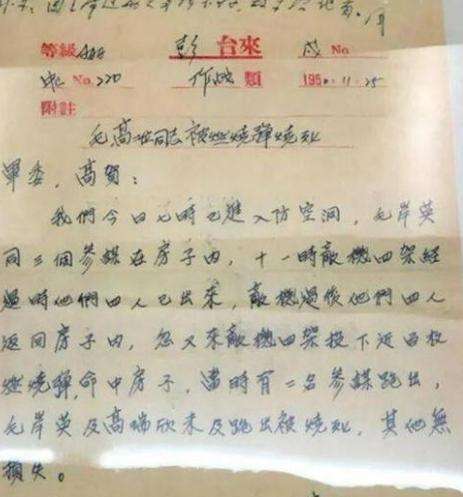 等級 彭 台來 No
No.220 作战 類 1950.11.25
附註
毛高 同志被燃燒彈燒死
軍委,高賀:
我們今日七時已進入防空洞,毛岸英
同三個參謀在房子内,十一時敵機四架經
過時他們四人已出來,敵機過後他們四人
返回房子内,忽又來敵機四架投下近百枚
燃燒彈,命中房子,當時有二名參謀跑出,
毛岸英及高瑞欣未及跑出被燒死,其他無
損失。